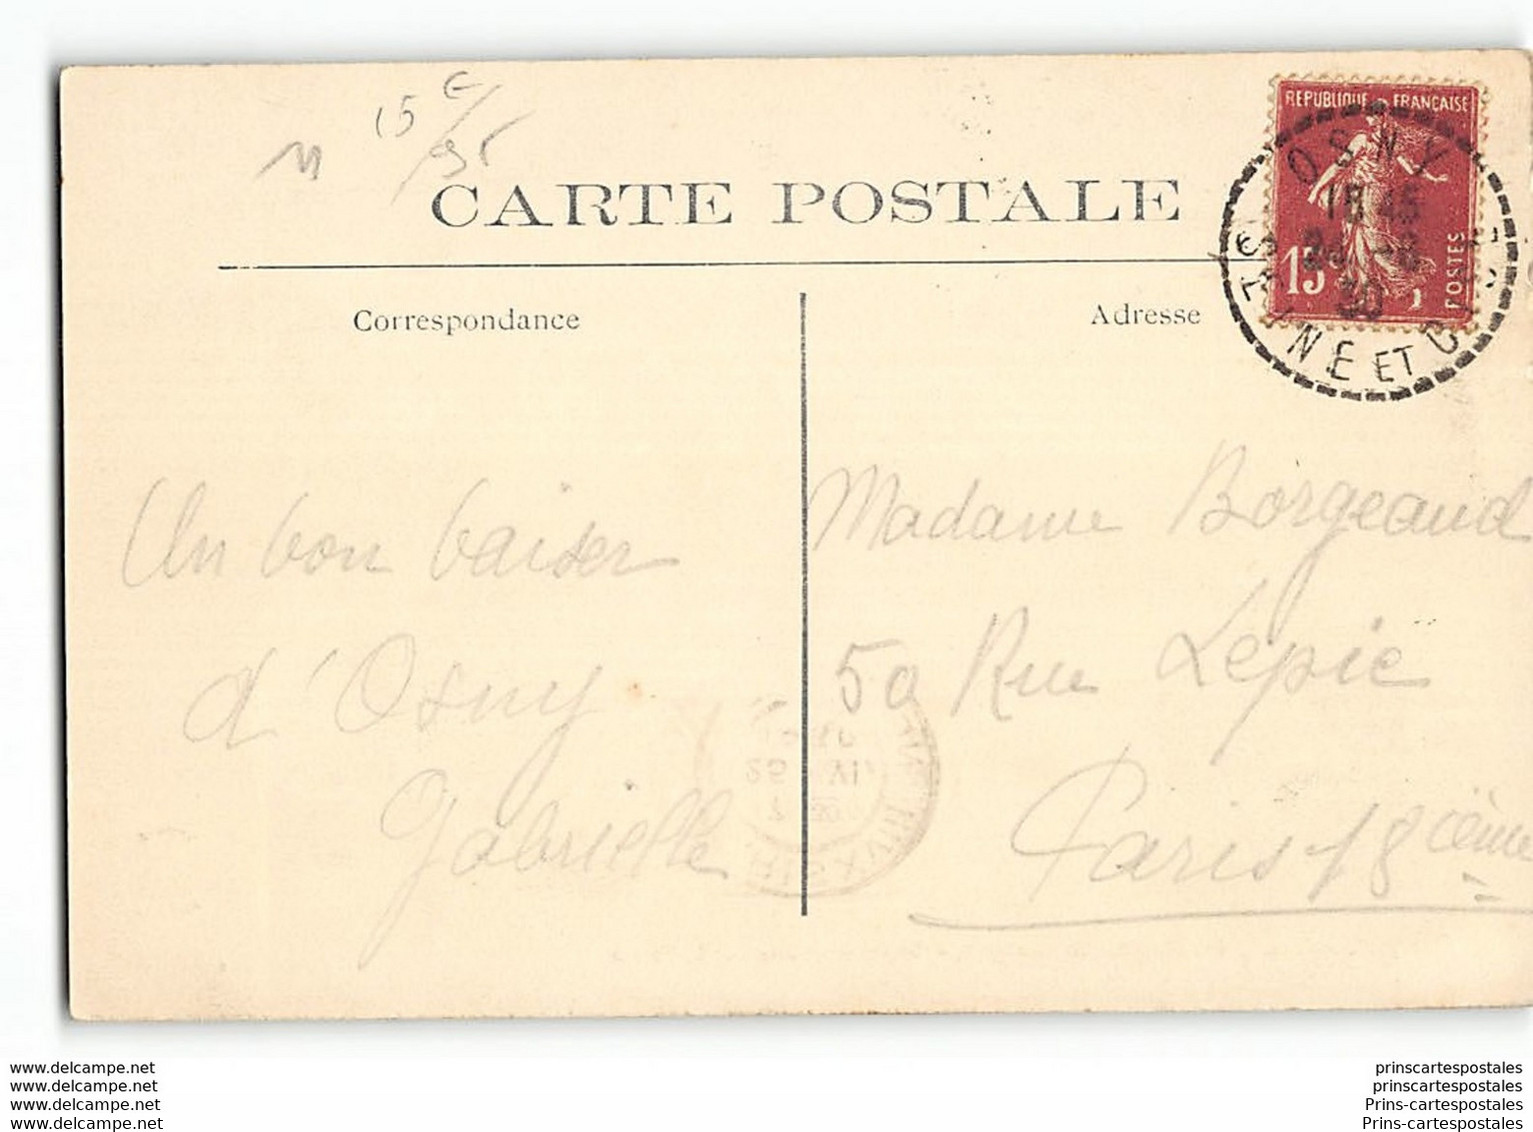 15 €
CARTE POSTALE
REPUBLIQUE FRANÇAISE
15c
POSTES
OSNY
18 45
30
SEINE ET OISE
Correspondance
Adresse
Un bon baiser
d'Osny
Gabrielle
Madame Borgeaud
50 Rue Lepic
Paris 18 ième
www.delcampe.net
www.delcampe.net
www.delcampe.net
www.delcampe.net
prinscartespostales
prinscartespostales
Prins-cartespostales
Prins-cartespostales